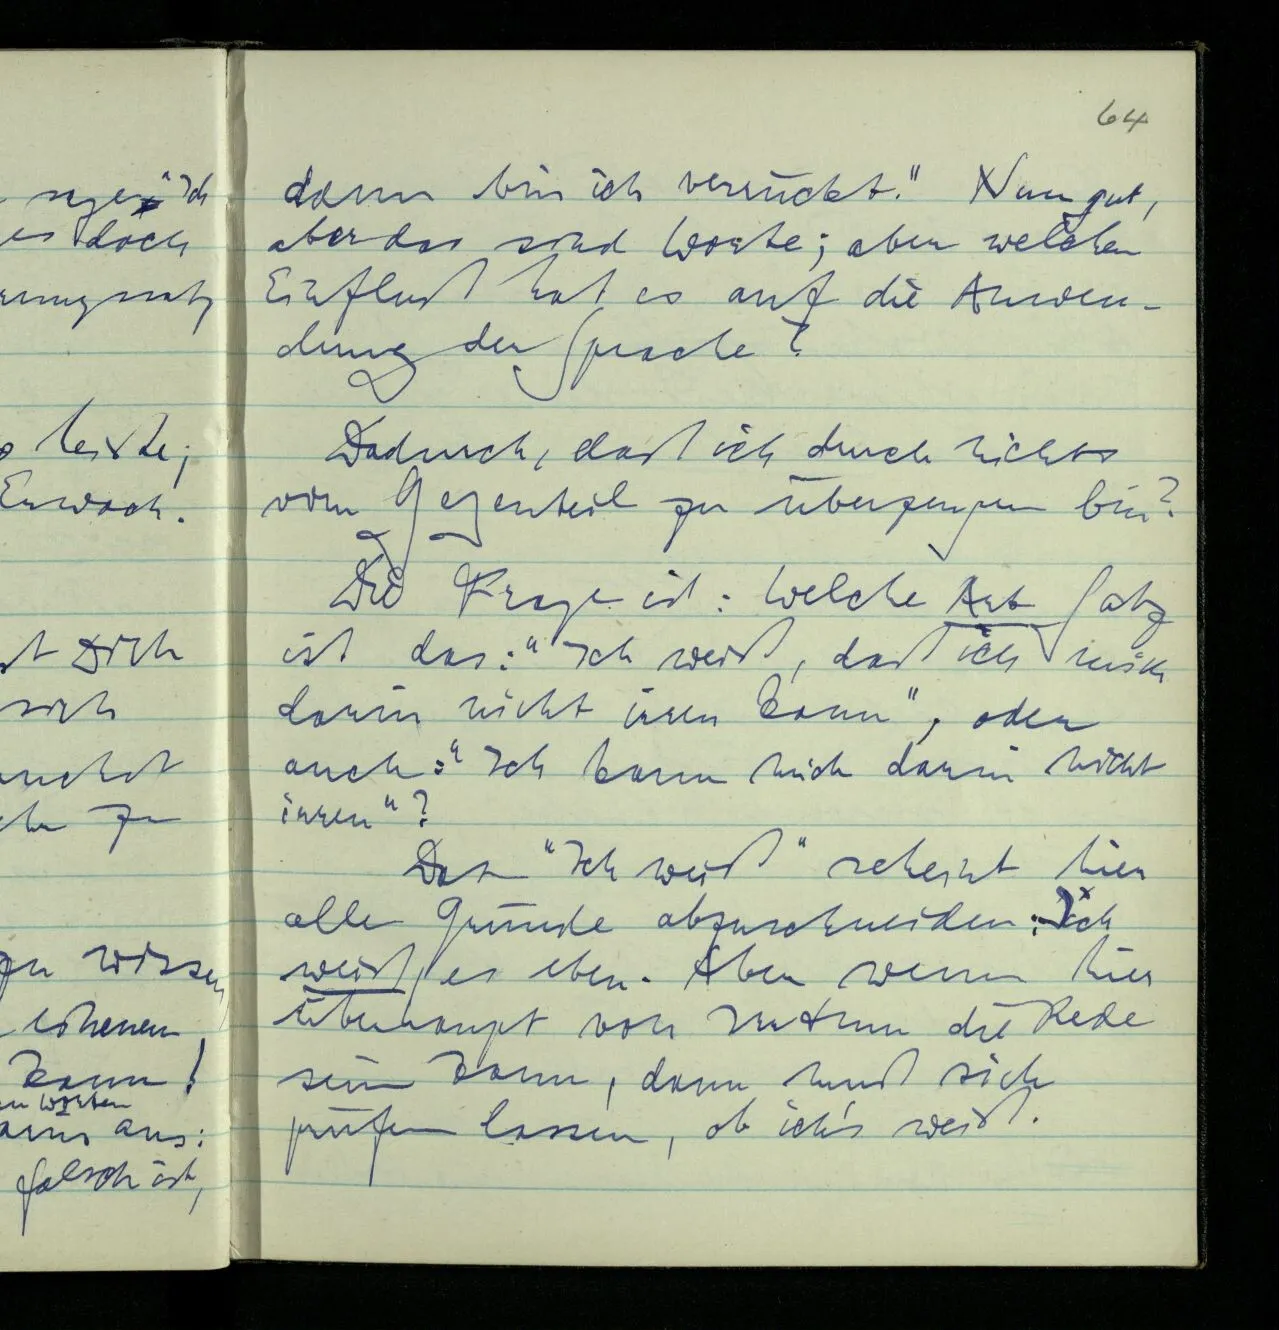 sagen "Ich
es doch
rungssatz
Erwach.
Dich
sich
zu
zu wissen
kann!
en Worten
aus:
falsch ist,
64
dann bin ich verrückt." Nun gut,
aber das sind Worte; aber welchen
Einfluß hat es auf die Anwen-
dung der Sprache?
Dadurch, daß ich durch nichts
vom Gegenteil zu überzeugen bin?
Die Frage ist: Welche Art Satz
ist das: "Ich weiß, daß ich mich
darin nicht irren kann", oder
auch: "Ich kann mich darin nicht
irren"?
Das "Ich weiß" scheint hier
alle Gründe abzuschneiden: Ich
weiß es eben. Aber wenn hier
überhaupt von Irrtum die Rede
sein kann, dann muß sich
prüfen lassen, ob ich's weiß.